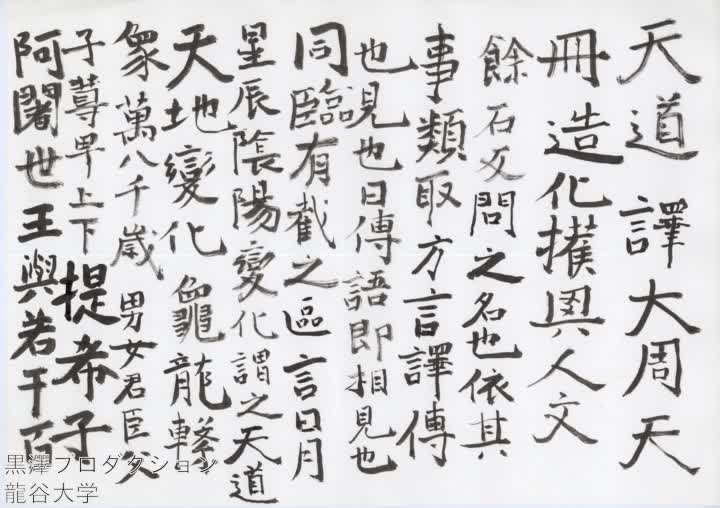 天道 譯大周天
冊造化權輿人文
餘石文問之名也依其
事類取方言譯傳
也見也曰傳語即相見也
同臨有截之區 言日月
星辰陰陽變化謂之天道
天地變化 龜龍
象萬八千歲 男女君臣父
子尊卑上下 提希子
阿闍世王與若干百
黒澤プロダクション
龍谷大学